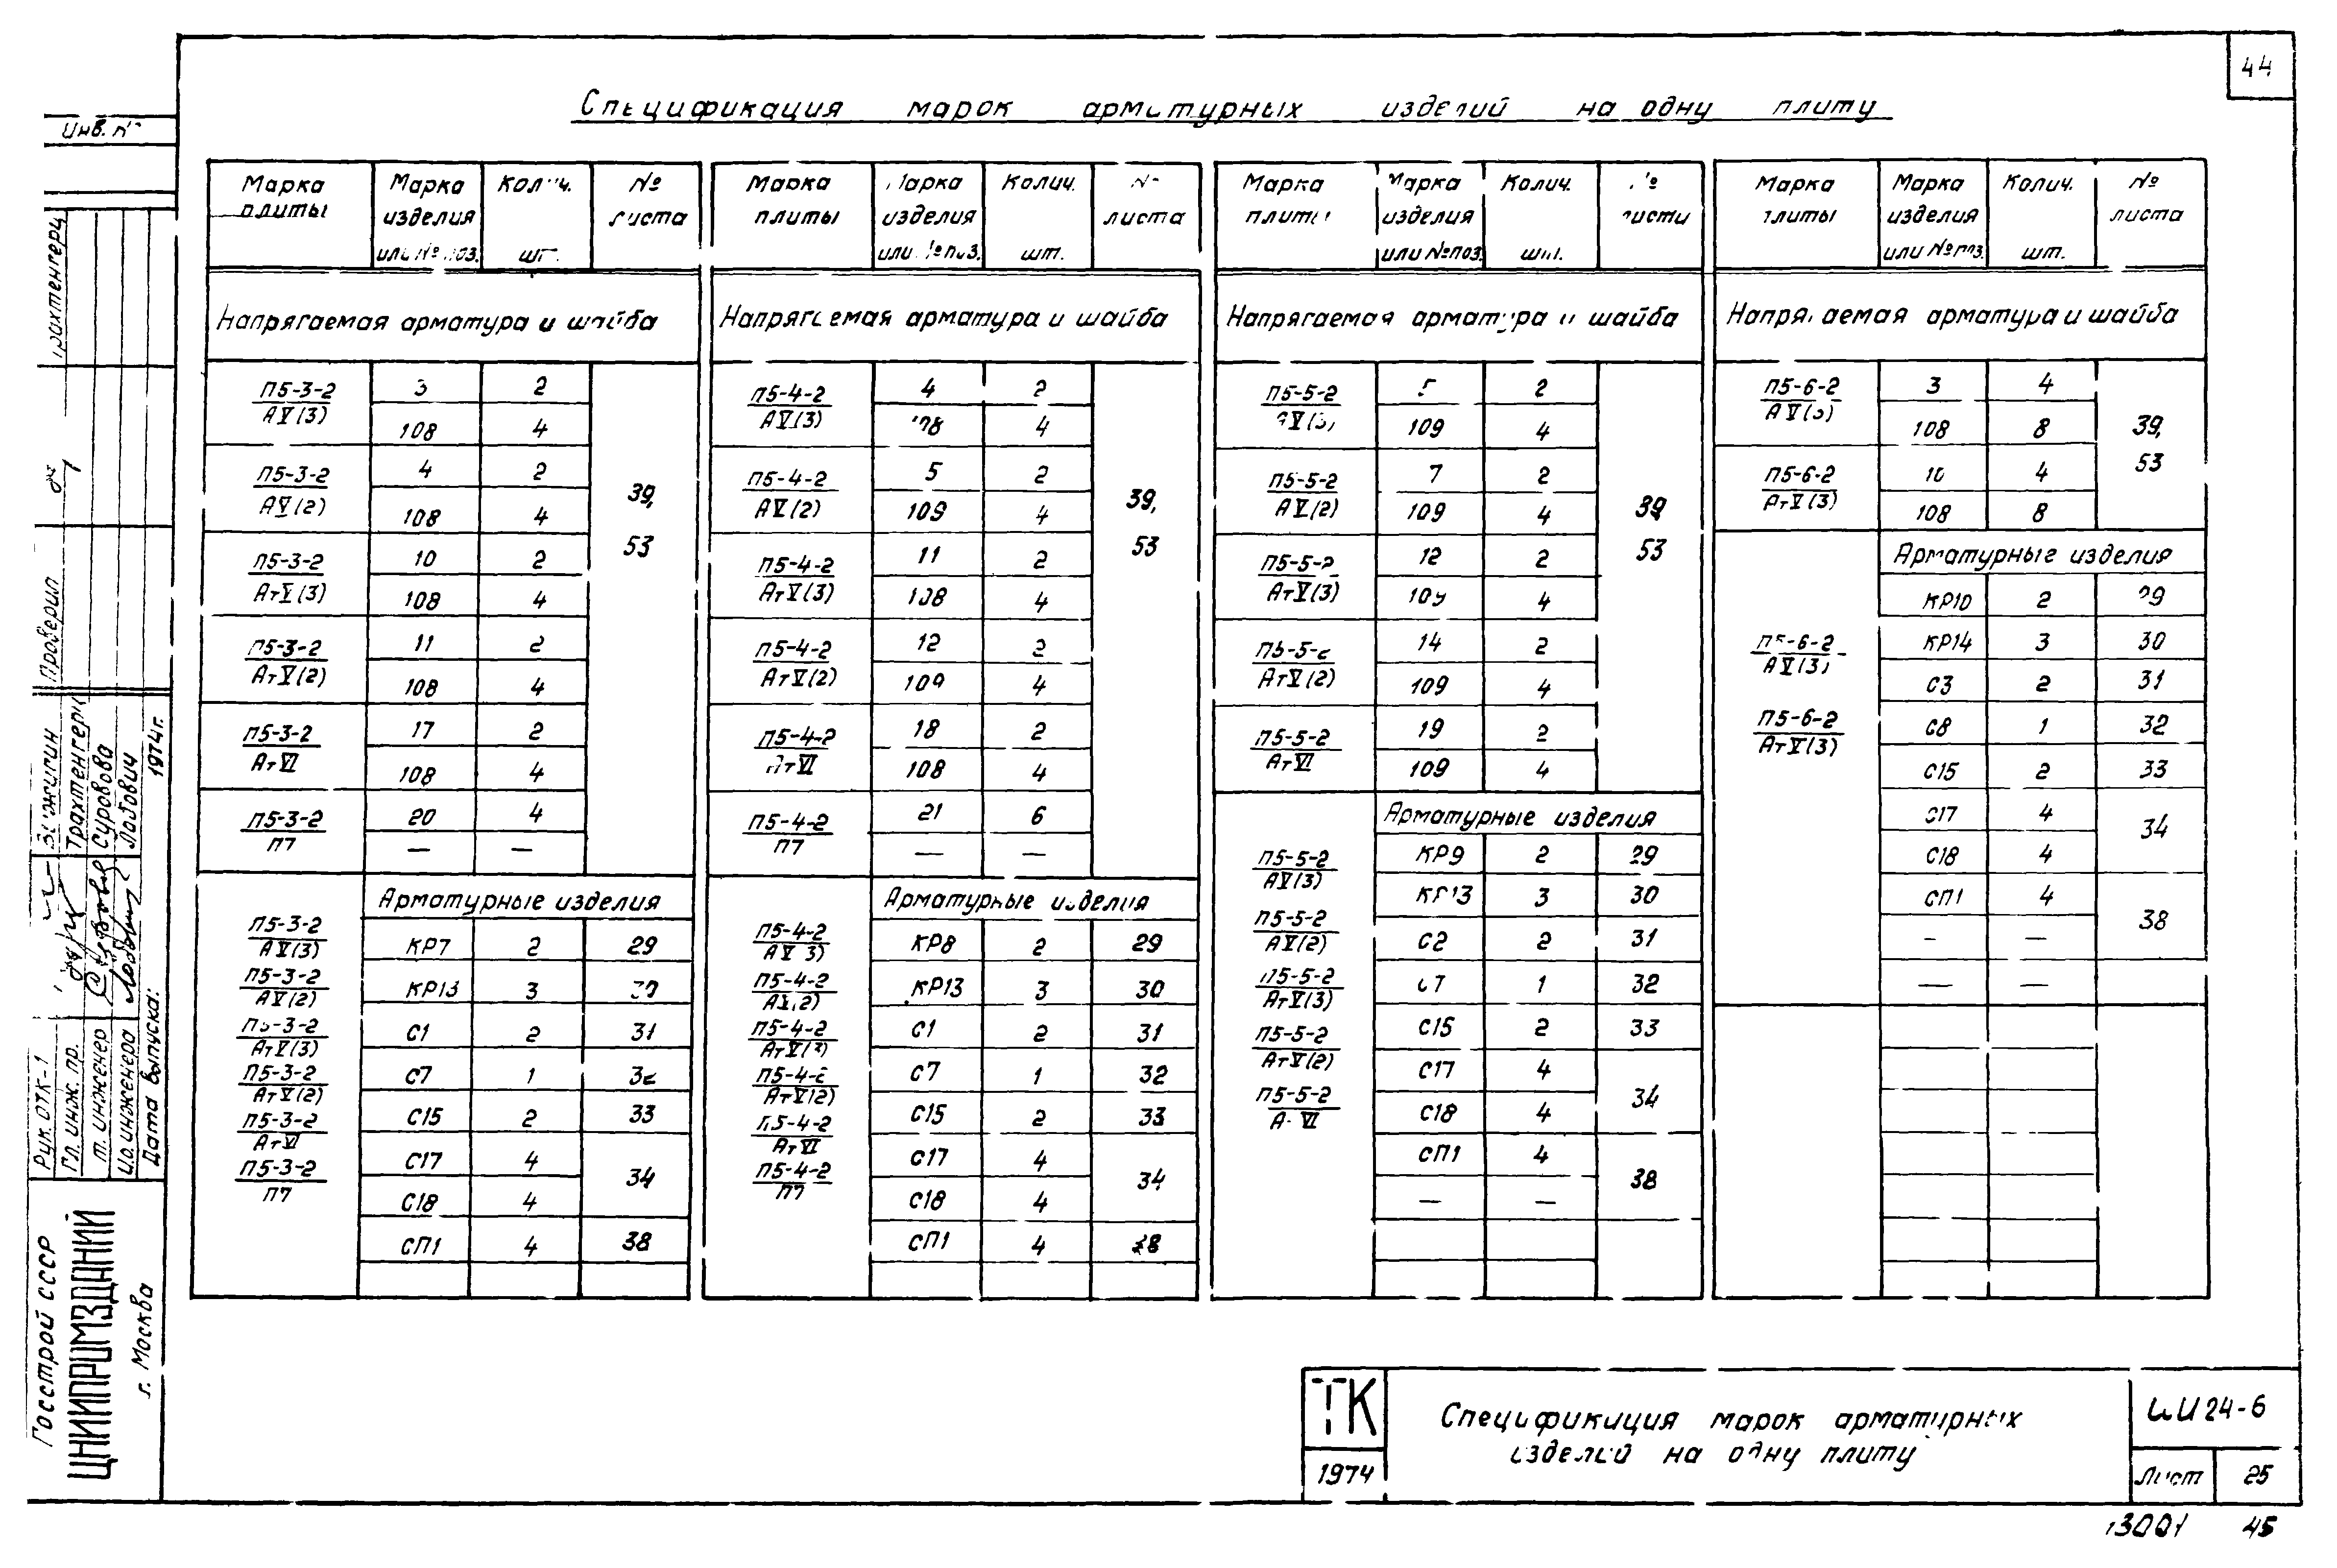 44
Спецификация марок арматурных изделий на одну плиту
Марка плиты | Марка изделия или № поз. | Колич. шт. | № листа
Напрягаемая арматура и шайба
П5-3-2/АV(3) | 3 | 2 | 39, 53
108 | 4
П5-3-2/АV(2) | 4 | 2
108 | 4
П5-3-2/АтV(3) | 10 | 2
108 | 4
П5-3-2/АтV(2) | 11 | 2
108 | 4
П5-3-2/АтVI | 17 | 2
108 | 4
П5-3-2/П7 | 20 | 4
— | —
Арматурные изделия
П5-3-2/АV(3)
П5-3-2/АV(2)
П5-3-2/АтV(3)
П5-3-2/АтV(2)
П5-3-2/АтVI
П5-3-2/П7
КР7 | 2 | 29
КР13 | 3 | 30
С1 | 2 | 31
С7 | 1 | 32
С15 | 2 | 33
С17 | 4 | 34
С18 | 4
СП1 | 4 | 38
Марка плиты | Марка изделия или № поз. | Колич. шт. | № листа
Напрягаемая арматура и шайба
П5-4-2/АV(3) | 4 | 2 | 39, 53
108 | 4
П5-4-2/АV(2) | 5 | 2
109 | 4
П5-4-2/АтV(3) | 11 | 2
108 | 4
П5-4-2/АтV(2) | 12 | 2
109 | 4
П5-4-2/АтVI | 18 | 2
108 | 4
П5-4-2/П7 | 21 | 6
— | —
Арматурные изделия
П5-4-2/АV(3)
П5-4-2/АV(2)
П5-4-2/АтV(3)
П5-4-2/АтV(2)
П5-4-2/АтVI
П5-4-2/П7
КР8 | 2 | 29
КР13 | 3 | 30
С1 | 2 | 31
С7 | 1 | 32
С15 | 2 | 33
С17 | 4 | 34
С18 | 4
СП1 | 4 | 38
Марка плиты | Марка изделия или № поз. | Колич. шт. | № листа
Напрягаемая арматура и шайба
П5-5-2/АV(3) | 5 | 2 | 39, 53
109 | 4
П5-5-2/АV(2) | 7 | 2
109 | 4
П5-5-2/АтV(3) | 12 | 2
109 | 4
П5-5-2/АтV(2) | 14 | 2
109 | 4
П5-5-2/АтVI | 19 | 2
109 | 4
Арматурные изделия
П5-5-2/АV(3)
П5-5-2/АV(2)
П5-5-2/АтV(3)
П5-5-2/АтV(2)
П5-5-2/АтVI
КР9 | 2 | 29
КР13 | 3 | 30
С2 | 2 | 31
С7 | 1 | 32
С15 | 2 | 33
С17 | 4 | 34
С18 | 4
СП1 | 4 | 38
— | —
Марка плиты | Марка изделия или № поз. | Колич. шт. | № листа
Напрягаемая арматура и шайба
П5-6-2/АV(3) | 3 | 4 | 39, 53
108 | 8
П5-6-2/АтV(3) | 10 | 4
108 | 8
Арматурные изделия
П5-6-2/АV(3)
П5-6-2/АтV(3)
КР10 | 2 | 29
КР14 | 3 | 30
С3 | 2 | 31
С8 | 1 | 32
С15 | 2 | 33
С17 | 4 | 34
С18 | 4
СП1 | 4 | 38
— | —
— | —
Инв. №
Трахтенгерц
Проверил
Трахтенгерц
Суровова
Лобович
Рук. ОТК-1
Гл. инж. пр.
т. инженер
Ио. инженера
Дата выпуска: 1974г.
Госстрой СССР
ЦНИИПРОМЗДАНИЙ
г. Москва
ТК
1974
Спецификация марок арматурных
изделий на одну плиту
ИИ24-6
Лист 25
13001 45